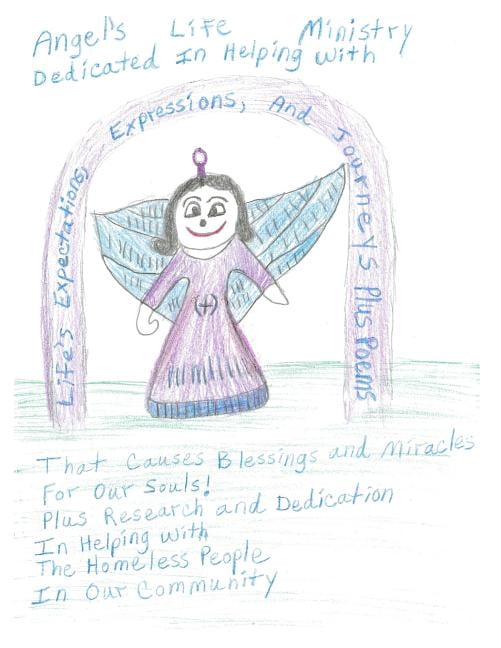 Angel's Life Ministry
Dedicated In Helping With
Life's Expectations, Expressions, And Journeys Plus Poems
That Causes Blessings and Miracles
For Our Souls!
Plus Research and Dedication
In Helping with
The Homeless People
In Our Community